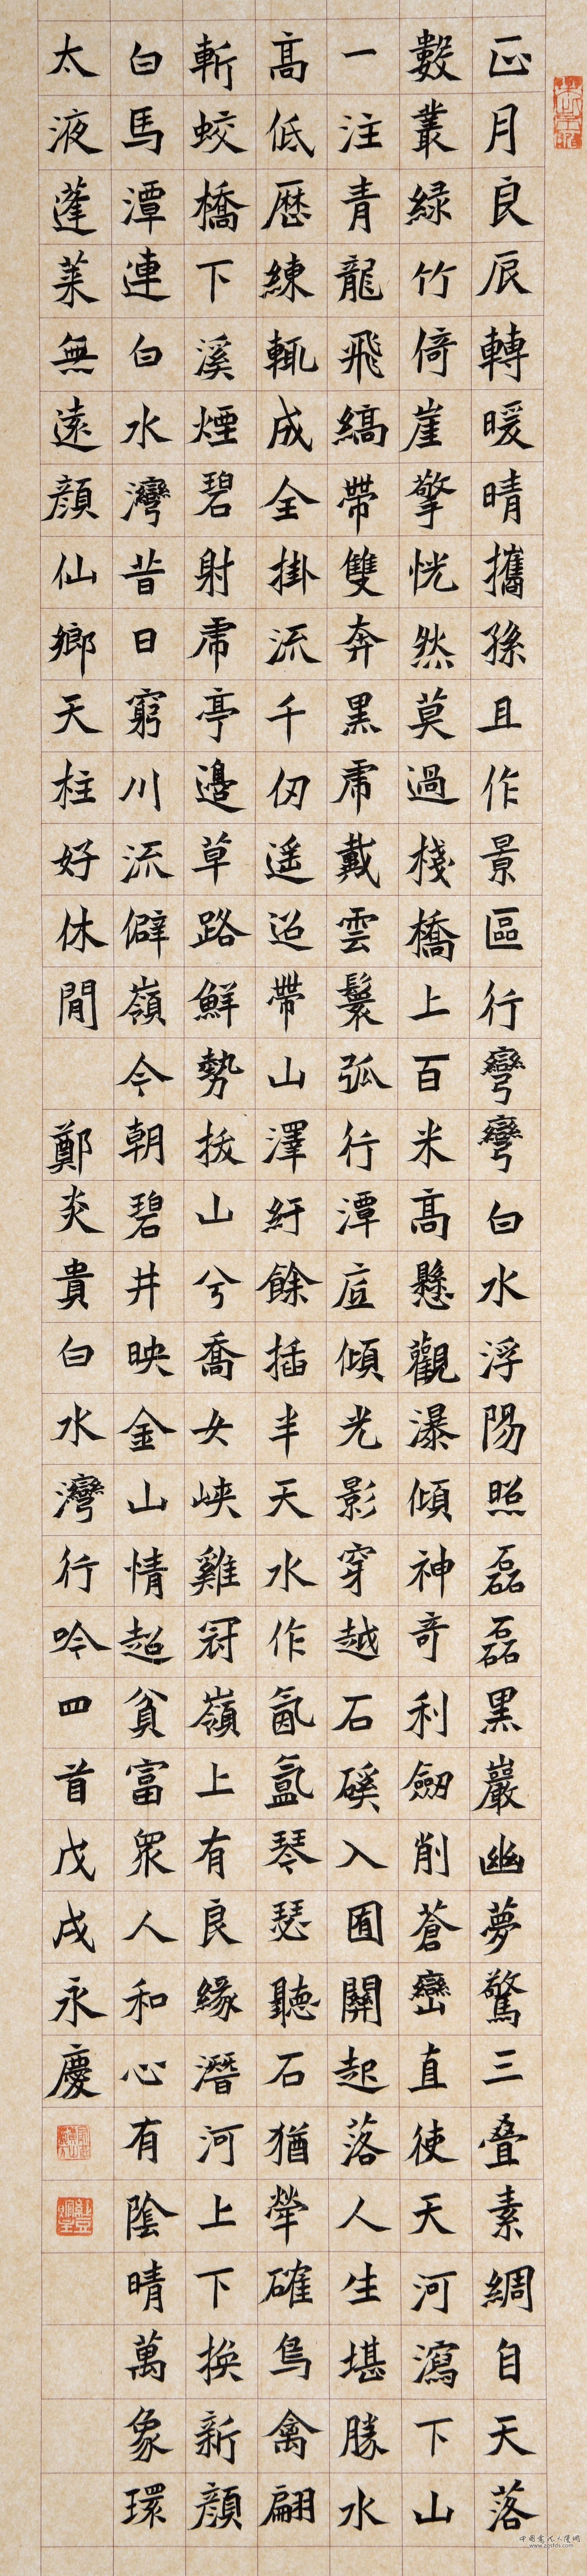 正月良辰轉暖晴攜孫且作景區行彎彎白水浮陽照磊磊黑巖幽夢驚三叠素綢自天落
數叢綠竹倚崖擎恍然莫過棧橋上百米高懸觀瀑傾神奇利劒削蒼巒直使天河瀉下山
一注青龍飛縞帶雙奔黑虎戴雲鬟弧行潭底傾光影穿越石磎入囿關起落人生堪勝水
高低歷練輒成全掛流千仞遥迢帶山澤紆餘插半天水作氤氲琴瑟聽石猶犖確鳥禽翩
斬蛟橋下溪煙碧射虎亭邊草路鮮勢拔山兮喬女峽雞冠嶺上有良緣潛河上下换新顔
白馬潭連白水灣昔日窮川流僻嶺今朝碧井映金山情超貧富衆人和心有陰晴萬象環
太液蓬萊無遠顔仙鄉天柱好休閒 鄭炎貴白水灣行吟四首戊戌永慶
中国书法人才网
www.zgsfrcs.com